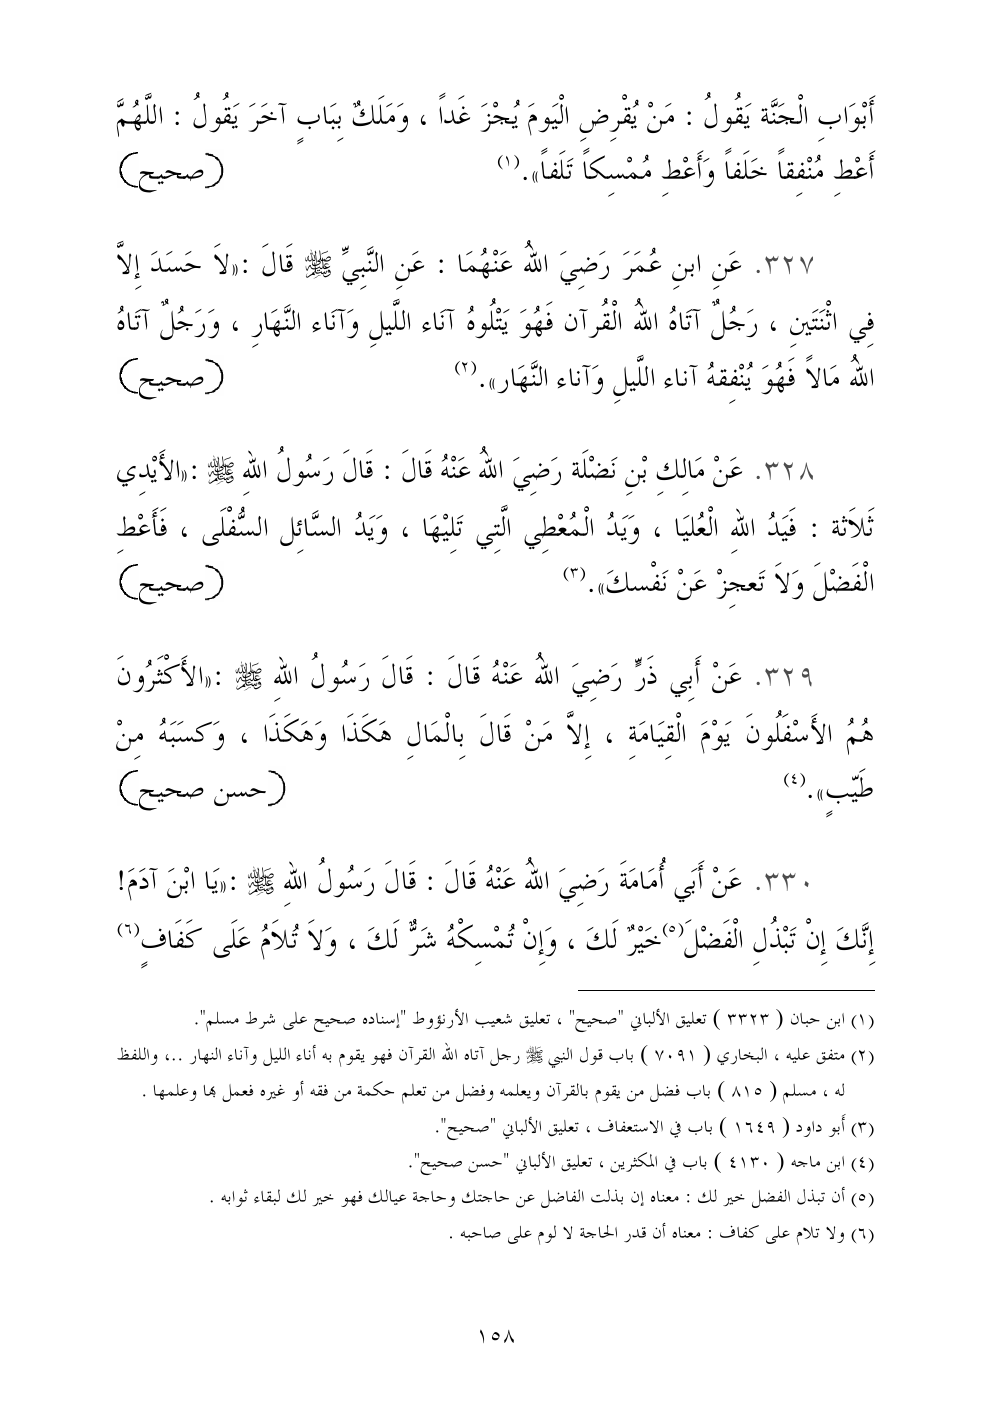 أَبْوَابِ الْجَنَّة يَقُولُ : مَنْ يُقْرِضِ الْيَومَ يُجْزَ غَداً ، وَمَلَكٌ بِبَابٍ آخَرَ يَقُولُ : اللَّهُمَّ
أَعْطِ مُنْفِقاً خَلَفاً وَأَعْطِ مُمْسِكاً تَلَفاً».(١) (صحيح)
٣٢٧. عَنِ ابنِ عُمَرَ رَضِيَ اللهُ عَنْهُمَا : عَنِ النَّبِيِّ ﷺ قَالَ :«لاَ حَسَدَ إِلاَّ
فِي اثْنَتَينِ ، رَجُلٌ آتَاهُ اللهُ الْقُرآن فَهُوَ يَتْلُوهُ آنَاء اللَّيلِ وَآنَاء النَّهَارِ ، وَرَجُلٌ آتَاهُ
اللهُ مَالاً فَهُوَ يُنْفِقهُ آناء اللَّيلِ وَآناء النَّهَار».(٢) (صحيح)
٣٢٨. عَنْ مَالِكِ بْنِ نَضْلَة رَضِيَ اللهُ عَنْهُ قَالَ : قَالَ رَسُولُ اللهِ ﷺ :«الأَيْدِي
ثَلاَثة : فَيَدُ اللهِ الْعُليَا ، وَيَدُ الْمُعْطِي الَّتِي تَلِيْهَا ، وَيَدُ السَّائِل السُّفْلَى ، فَأَعْطِ
الْفَضْلَ وَلاَ تَعجِزْ عَنْ نَفْسكَ».(٣) (صحيح)
٣٢٩. عَنْ أَبِي ذَرٍّ رَضِيَ اللهُ عَنْهُ قَالَ : قَالَ رَسُولُ اللهِ ﷺ :«الأَكْثَرُونَ
هُمُ الأَسْفَلُونَ يَوْمَ الْقِيَامَةِ ، إِلاَّ مَنْ قَالَ بِالْمَالِ هَكَذَا وَهَكَذَا ، وَكسَبَهُ مِنْ
طَيّبٍ».(٤) (حسن صحيح)
٣٣٠. عَنْ أَبَي أُمَامَةَ رَضِيَ اللهُ عَنْهُ قَالَ : قَالَ رَسُولُ اللهِ ﷺ :«يَا ابْنَ آدَمَ!
إِنَّكَ إِنْ تَبْذُلِ الْفَضْلَ(٥)خَيْرٌ لَكَ ، وَإِنْ تُمْسِكْهُ شَرٌّ لَكَ ، وَلاَ تُلاَمُ عَلَى كَفَافٍ(٦)
(١) ابن حبان ( ٣٣٢٣ ) تعليق الألباني "صحيح" ، تعليق شعيب الأرنؤوط "إسناده صحيح على شرط مسلم".
(٢) متفق عليه ، البخاري ( ٧٠٩١ ) باب قول النبي ﷺ رجل آتاه الله القرآن فهو يقوم به أناء الليل وآناء النهار ..، واللفظ
له ، مسلم ( ٨١٥ ) باب فضل من يقوم بالقرآن ويعلمه وفضل من تعلم حكمة من فقه أو غيره فعمل بها وعلمها .
(٣) أبو داود ( ١٦٤٩ ) باب في الاستعفاف ، تعليق الألباني "صحيح".
(٤) ابن ماجه ( ٤١٣٠ ) باب في المكثرين ، تعليق الألباني "حسن صحيح".
(٥) أن تبذل الفضل خير لك : معناه إن بذلت الفاضل عن حاجتك وحاجة عيالك فهو خير لك لبقاء ثوابه .
(٦) ولا تلام على كفاف : معناه أن قدر الحاجة لا لوم على صاحبه .
١٥٨